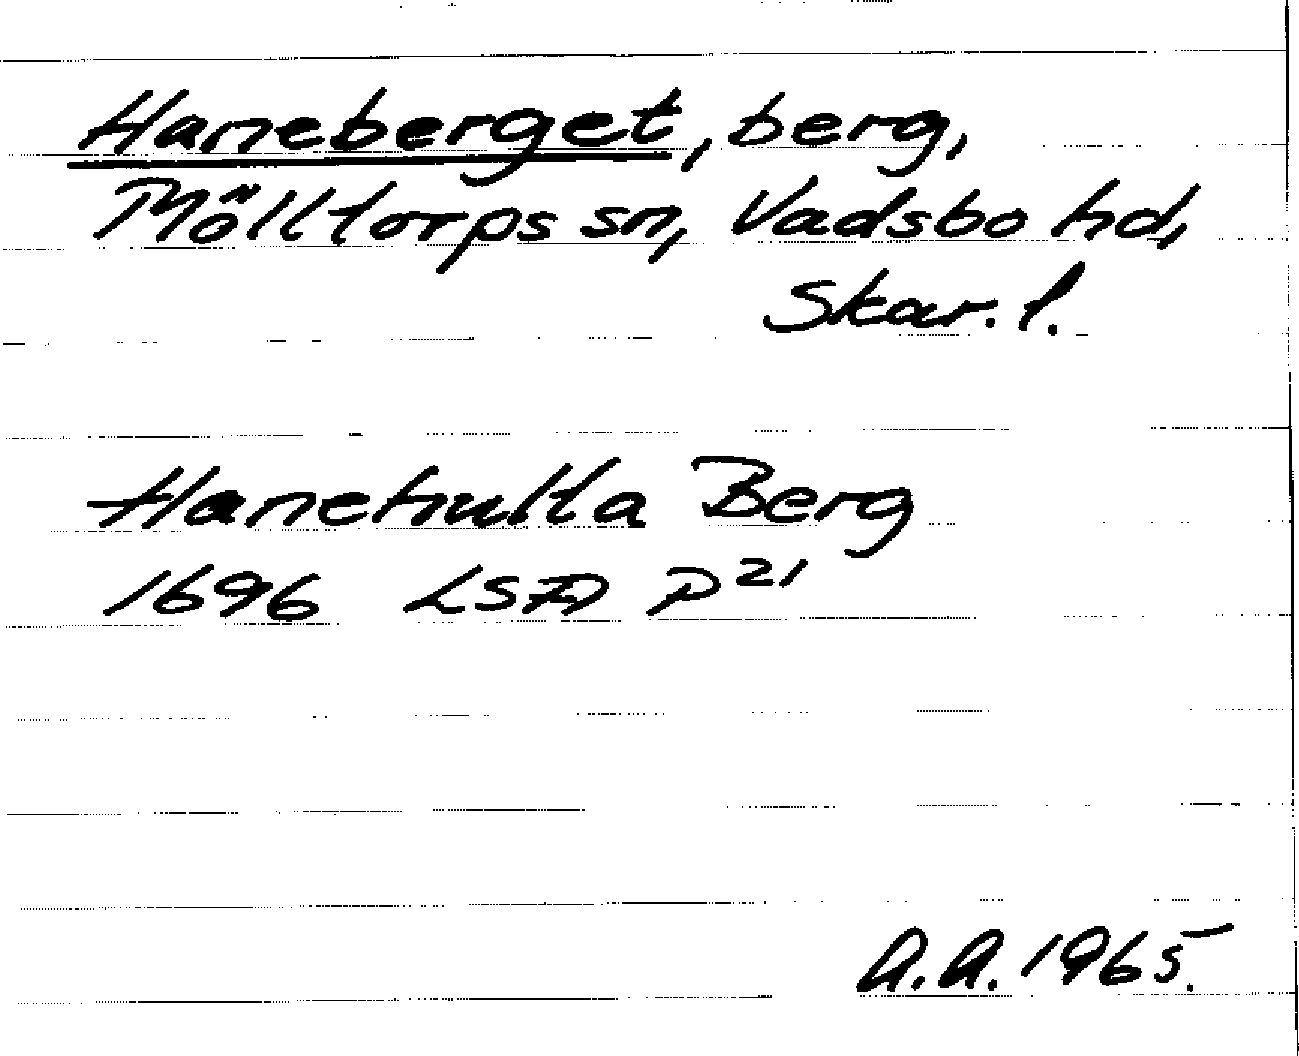 Haneberget, berg,
Mölltorps sn, Vadsbo hd,
Skar. l.
Hanehulta Berg
1696 LSA P 21
A.A. 1965.